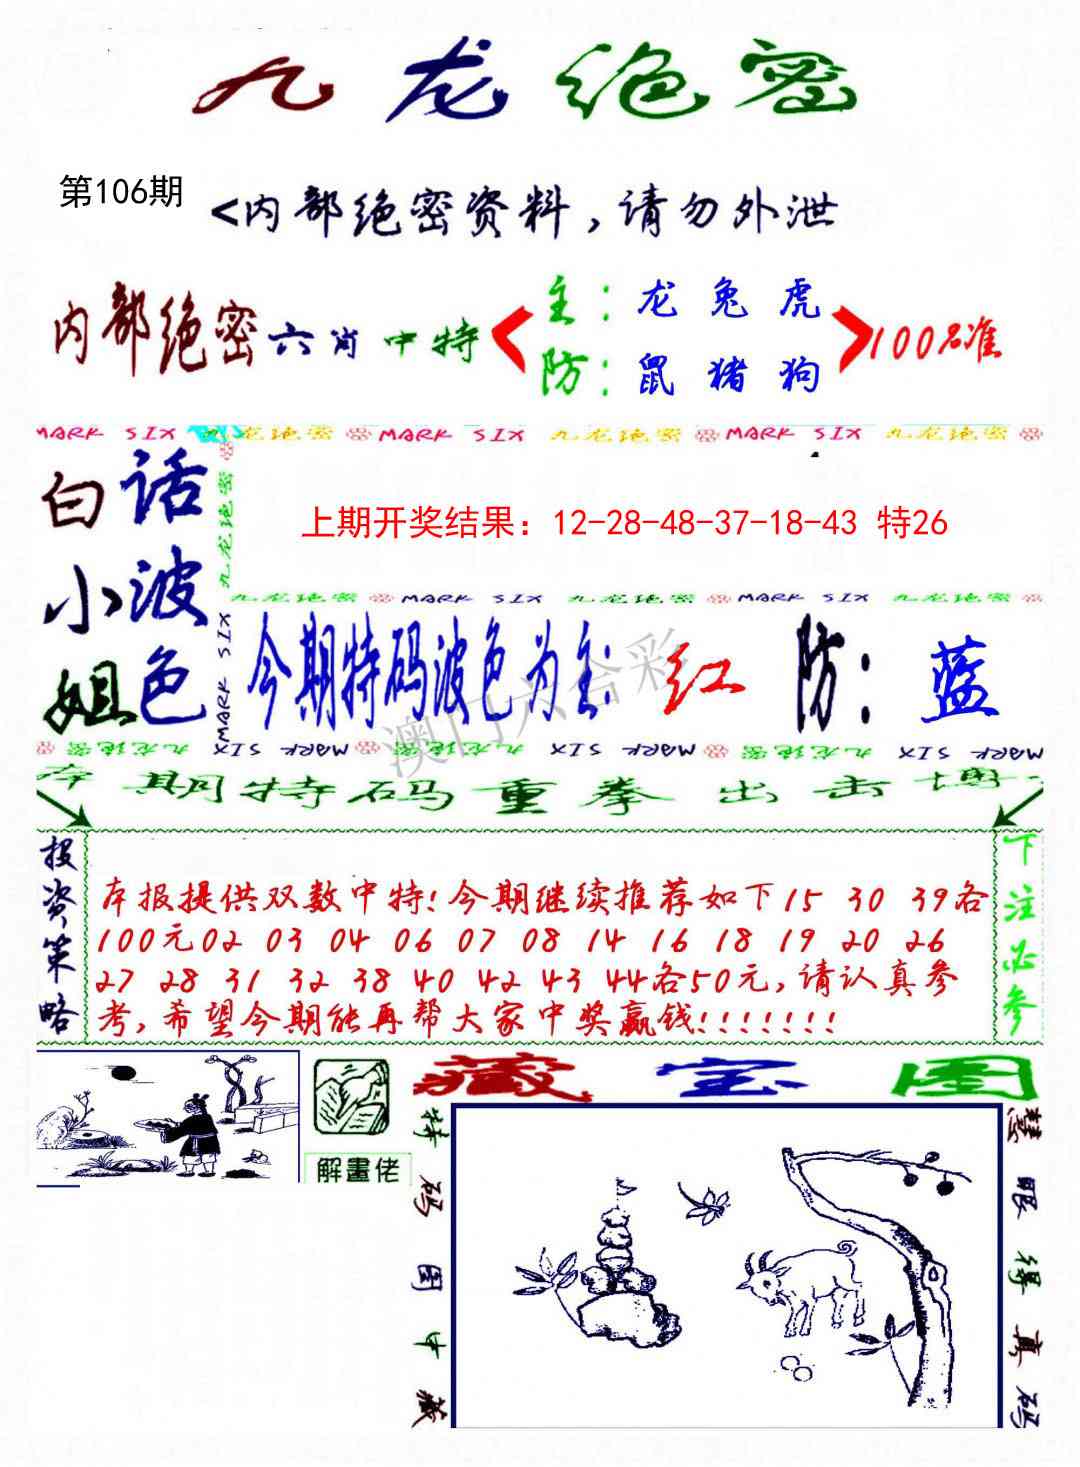 九龙绝密
第106期
<内部绝密资料,请勿外泄
内部绝密六肖中特
主:龙兔虎
防:鼠猪狗
100%准
MARK SIX 九龙绝密 MARK SIX 九龙绝密 MARK SIX 九龙绝密
白小姐
话波色
九龙绝密
MARK SIX
上期开奖结果：12-28-48-37-18-43 特26
九龙绝密 MARK SIX 九龙绝密 MARK SIX 九龙绝密
今期特码波色为主:红 防:蓝
澳门六合彩
九龙绝密 MARK SIX 九龙绝密 MARK SIX 九龙绝密 MARK SIX
本期特码重拳出击博
投资策略
本报提供双数中特!今期继续推荐如下15 30 39各
100元02 03 04 06 07 08 14 16 18 19 20 26
27 28 31 32 38 40 42 43 44各50元,请认真参
考,希望今期能再帮大家中奖赢钱!!!!!!!
下注必参
解畫佬
藏宝图
特码图中藏
慧眼得真码